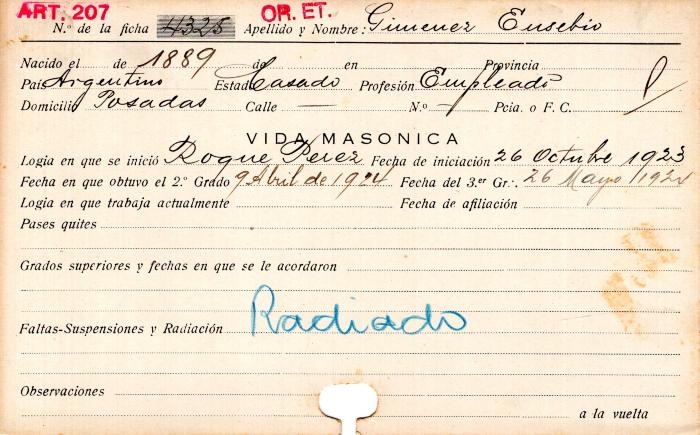 ART. 207 OR. ET.
N.º de la ficha 4325 Apellido y Nombre: Gimenez Eusebio
Nacido el de 1889 de en Provincia
País Argentino Estado Casado Profesión Empleado
Domicilio Posadas Calle — N.º - Pcia. o F. C.
VIDA MASONICA
Logia en que se inició Roque Perez Fecha de iniciación 26 Octubre 1923
Fecha en que obtuvo el 2.º Grado 9 Abril de 1924 Fecha del 3.er Gr∴ 26 Mayo/1924
Logia en que trabaja actualmente Fecha de afiliación
Pases quites
Grados superiores y fechas en que se le acordaron
Faltas-Suspensiones y Radiación Radiado
Observaciones
a la vuelta